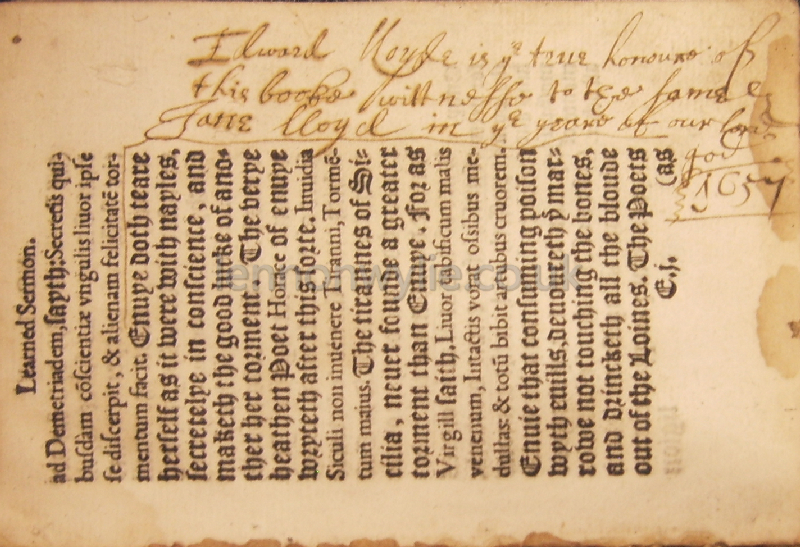 Edward lloyde is yᵉ true honoure of
this booke wittnesse to the same
Jane lloyd in yᵉ yeare of our lord
god
1657
Learned Sermon.
ad Demetriadem, sayth: Secretis qui-
busdam cōscientiæ vngulis liuor ipse
se discerpit, & alienam felicitatē tor-
mentum facit. Enuye doth teare
herself as it were with nayles,
secretelye in conscience, and
maketh the good lucke of ano-
ther her torment. The verye
heathen Poet Horace of enuye
wryteth after this sorte. Inuidia
Siculi non inuenere Tiranni, Tormē-
tum maius. The tirannes of Si-
cilia, neuer founde a greater
torment than Enuye. For as
Virgill saith, Liuor tabificum malis
venenum, Intactis vorat ossibus me-
dullas: & totū bibit artubus cruorem.
Enuie that consuming poison
wyth euills, deuoureth yͤ mar-
rowe not touching the bones,
and drincketh all the bloude
out of the Loines. The Poets
E.j. (as
lennonwylie.co.uk